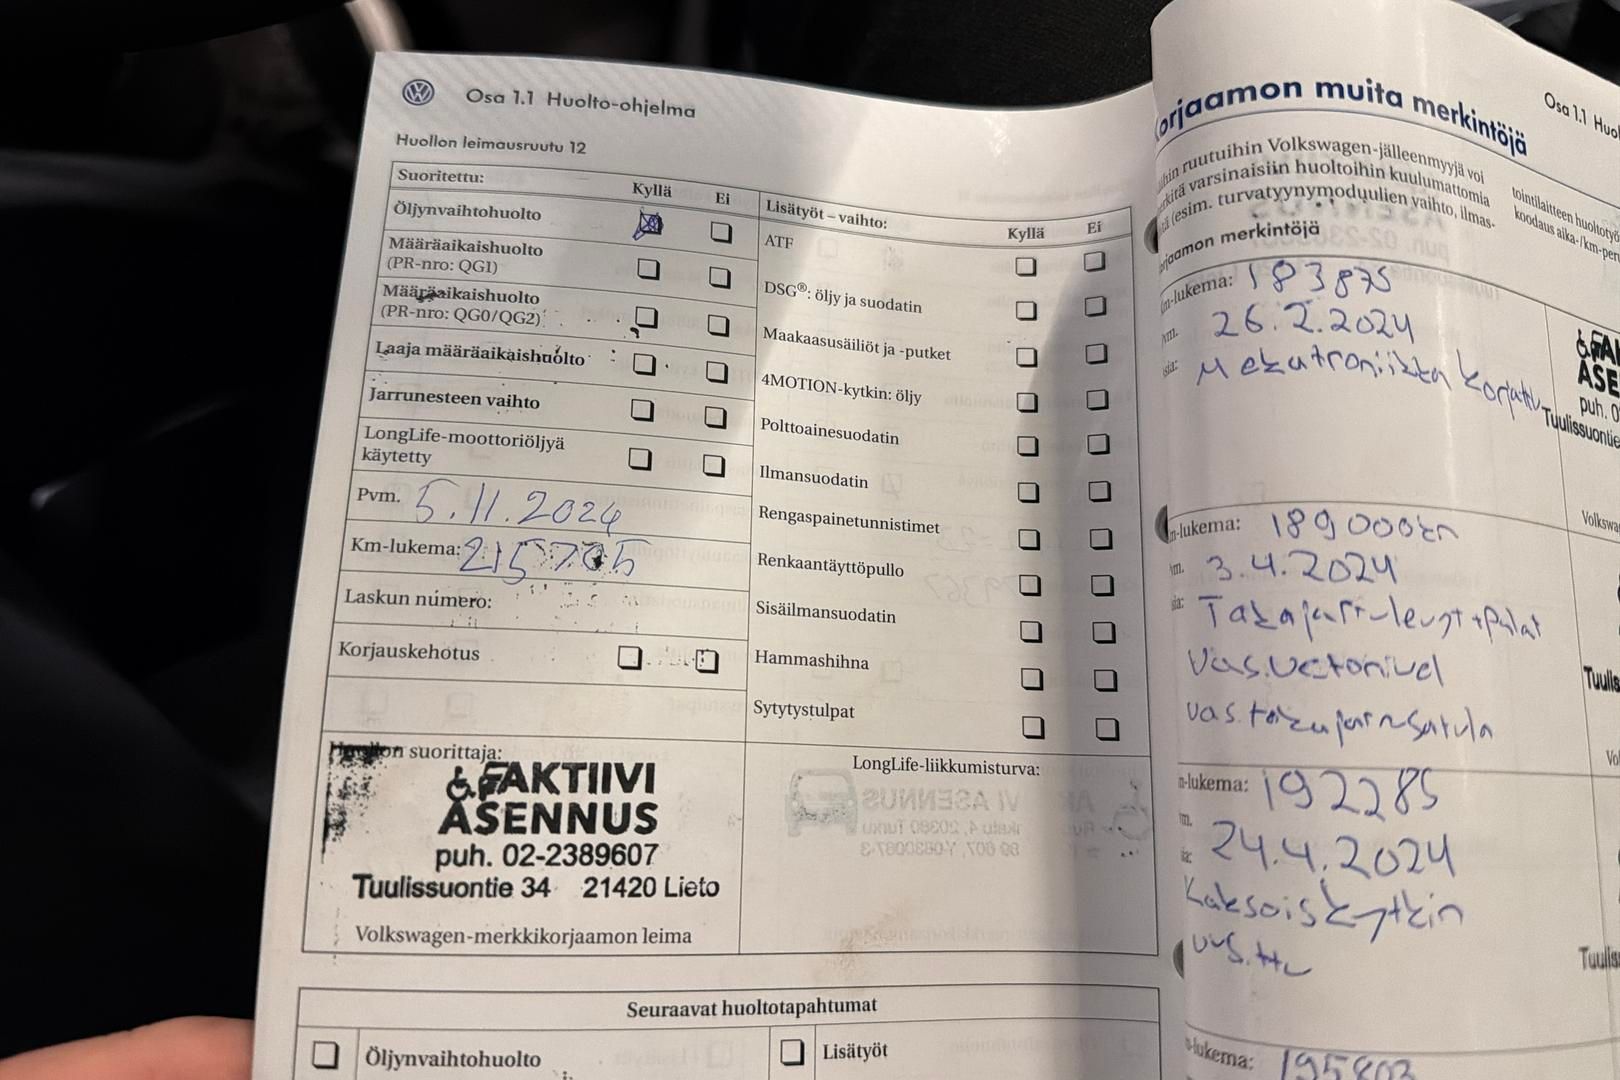 Osa 1.1 Huolto-ohjelma
Huollon leimausruutu 12
Suoritettu:
Kyllä
Ei
Öljynvaihtohuolto
Määräaikaishuolto
(PR-nro: QG1)
Määräaikaishuolto
(PR-nro: QG0/QG2)
Laaja määräaikaishuolto
Jarrunesteen vaihto
LongLife-moottoriöljyä
käytetty
Pvm. 5.11.2024
Km-lukema: 215705
Laskun numero:
Korjauskehotus
Lisätyöt – vaihto:
Kyllä
Ei
ATF
DSG®: öljy ja suodatin
Maakaasusäiliöt ja -putket
4MOTION-kytkin: öljy
Polttoainesuodatin
Ilmansuodatin
Rengaspainetunnistimet
Renkaantäyttöpullo
Sisäilmansuodatin
Hammashihna
Sytytystulpat
Huollon suorittaja:
AKTIIVI
ASENNUS
puh. 02-2389607
Tuulissuontie 34 21420 Lieto
Volkswagen-merkkikorjaamon leima
LongLife-liikkumisturva:
Seuraavat huoltotapahtumat
Öljynvaihtohuolto
Lisätyöt
Osa 1.1
orjaamon muita merkintöjä
ruutuihin Volkswagen-jälleenmyyjä voi
varsinaisiin huoltoihin kuulumattomia
(esim. turvatyynymoduulien vaihto, ilmas-
tointilaitteen
koodaus aika-/km-
merkintöjä
-lukema: 183875
26.2.2024
Mekatroniikka korjattu
ASE
puh. 0
Tuulissuontie
-lukema: 189000km
3.4.2024
Takajarrulevyt+palat
Vas.vetonivel
vas.takajarrusatula
-lukema: 192285
24.4.2024
Kaksoiskytkin
-lukema: 195803